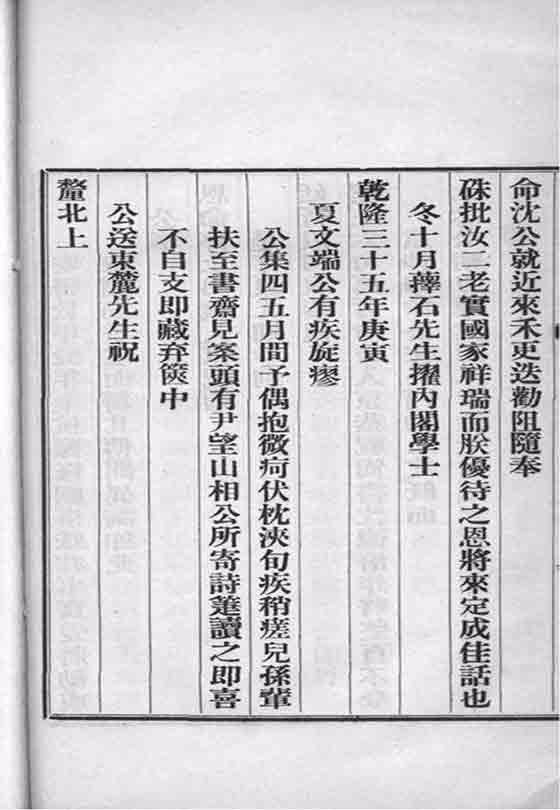 命沈公就近來禾更迭勸阻隨奉
硃批汝二老實國家祥瑞而朕優待之恩將來定成佳話也
冬十月蘀石先生擢內閣學士
乾隆三十五年庚寅
夏文端公有疾旋瘳
公集四五月間予偶抱微疴伏枕浹旬疾稍瘥兒孫輩
扶至書齋見案頭有尹望山相公所寄詩箑讀之即喜
不自支即藏弆篋中
公送東麓先生祝
釐北上